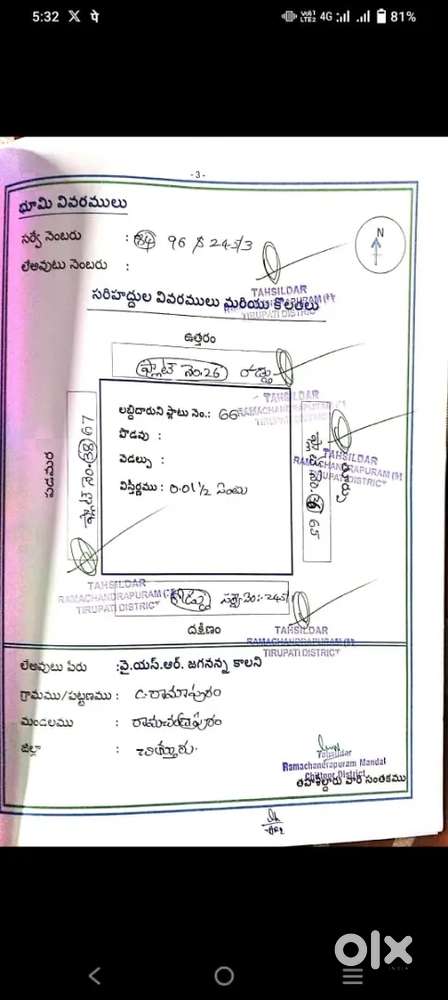 5:32 X पे
VoLTE LTE2 4G 81%
-3-
భూమి వివరములు
సర్వే నెంబరు : 84 96 & 245/3
లేఅవుటు నెంబరు :
TAHSILDAR
RAMACHANDRAPURAM (M)
TIRUPATI DISTRICT
సరిహద్దుల వివరములు మరియు కొలతలు
ఉత్తరం
ప్లాట్ నెం.26 రోడ్డు
TAHSILDAR
RAMACHANDRAPURAM (M)
TIRUPATI DISTRICT
లబ్దిదారుని ప్లాటు నం.: 66
పొడవు :
వెడల్పు :
విస్తీర్ణము : 0.01½ సెంటు
పడమర
ప్లాట్ నెం. 38 67
తూర్పు
ప్లాట్ నెం. 36 65
TAHSILDAR
RAMACHANDRAPURAM (M)
TIRUPATI DISTRICT
TAHSILDAR
RAMACHANDRAPURAM (M)
TIRUPATI DISTRICT
రోడ్డు సర్వే నెం:-245/
దక్షిణం
TAHSILDAR
RAMACHANDRAPURAM (M)
TIRUPATI DISTRICT
లేఅవుటు పేరు : వై.యస్.ఆర్. జగనన్న కాలని
గ్రామము/పట్టణము : C. రామాపురం
మండలము : రామచంద్రాపురం
జిల్లా : చిత్తూరు.
Tahsildar
Ramachandrapuram Mandal
Chittoor District
తహశీల్దారు వారి సంతకము
olx
INDIA